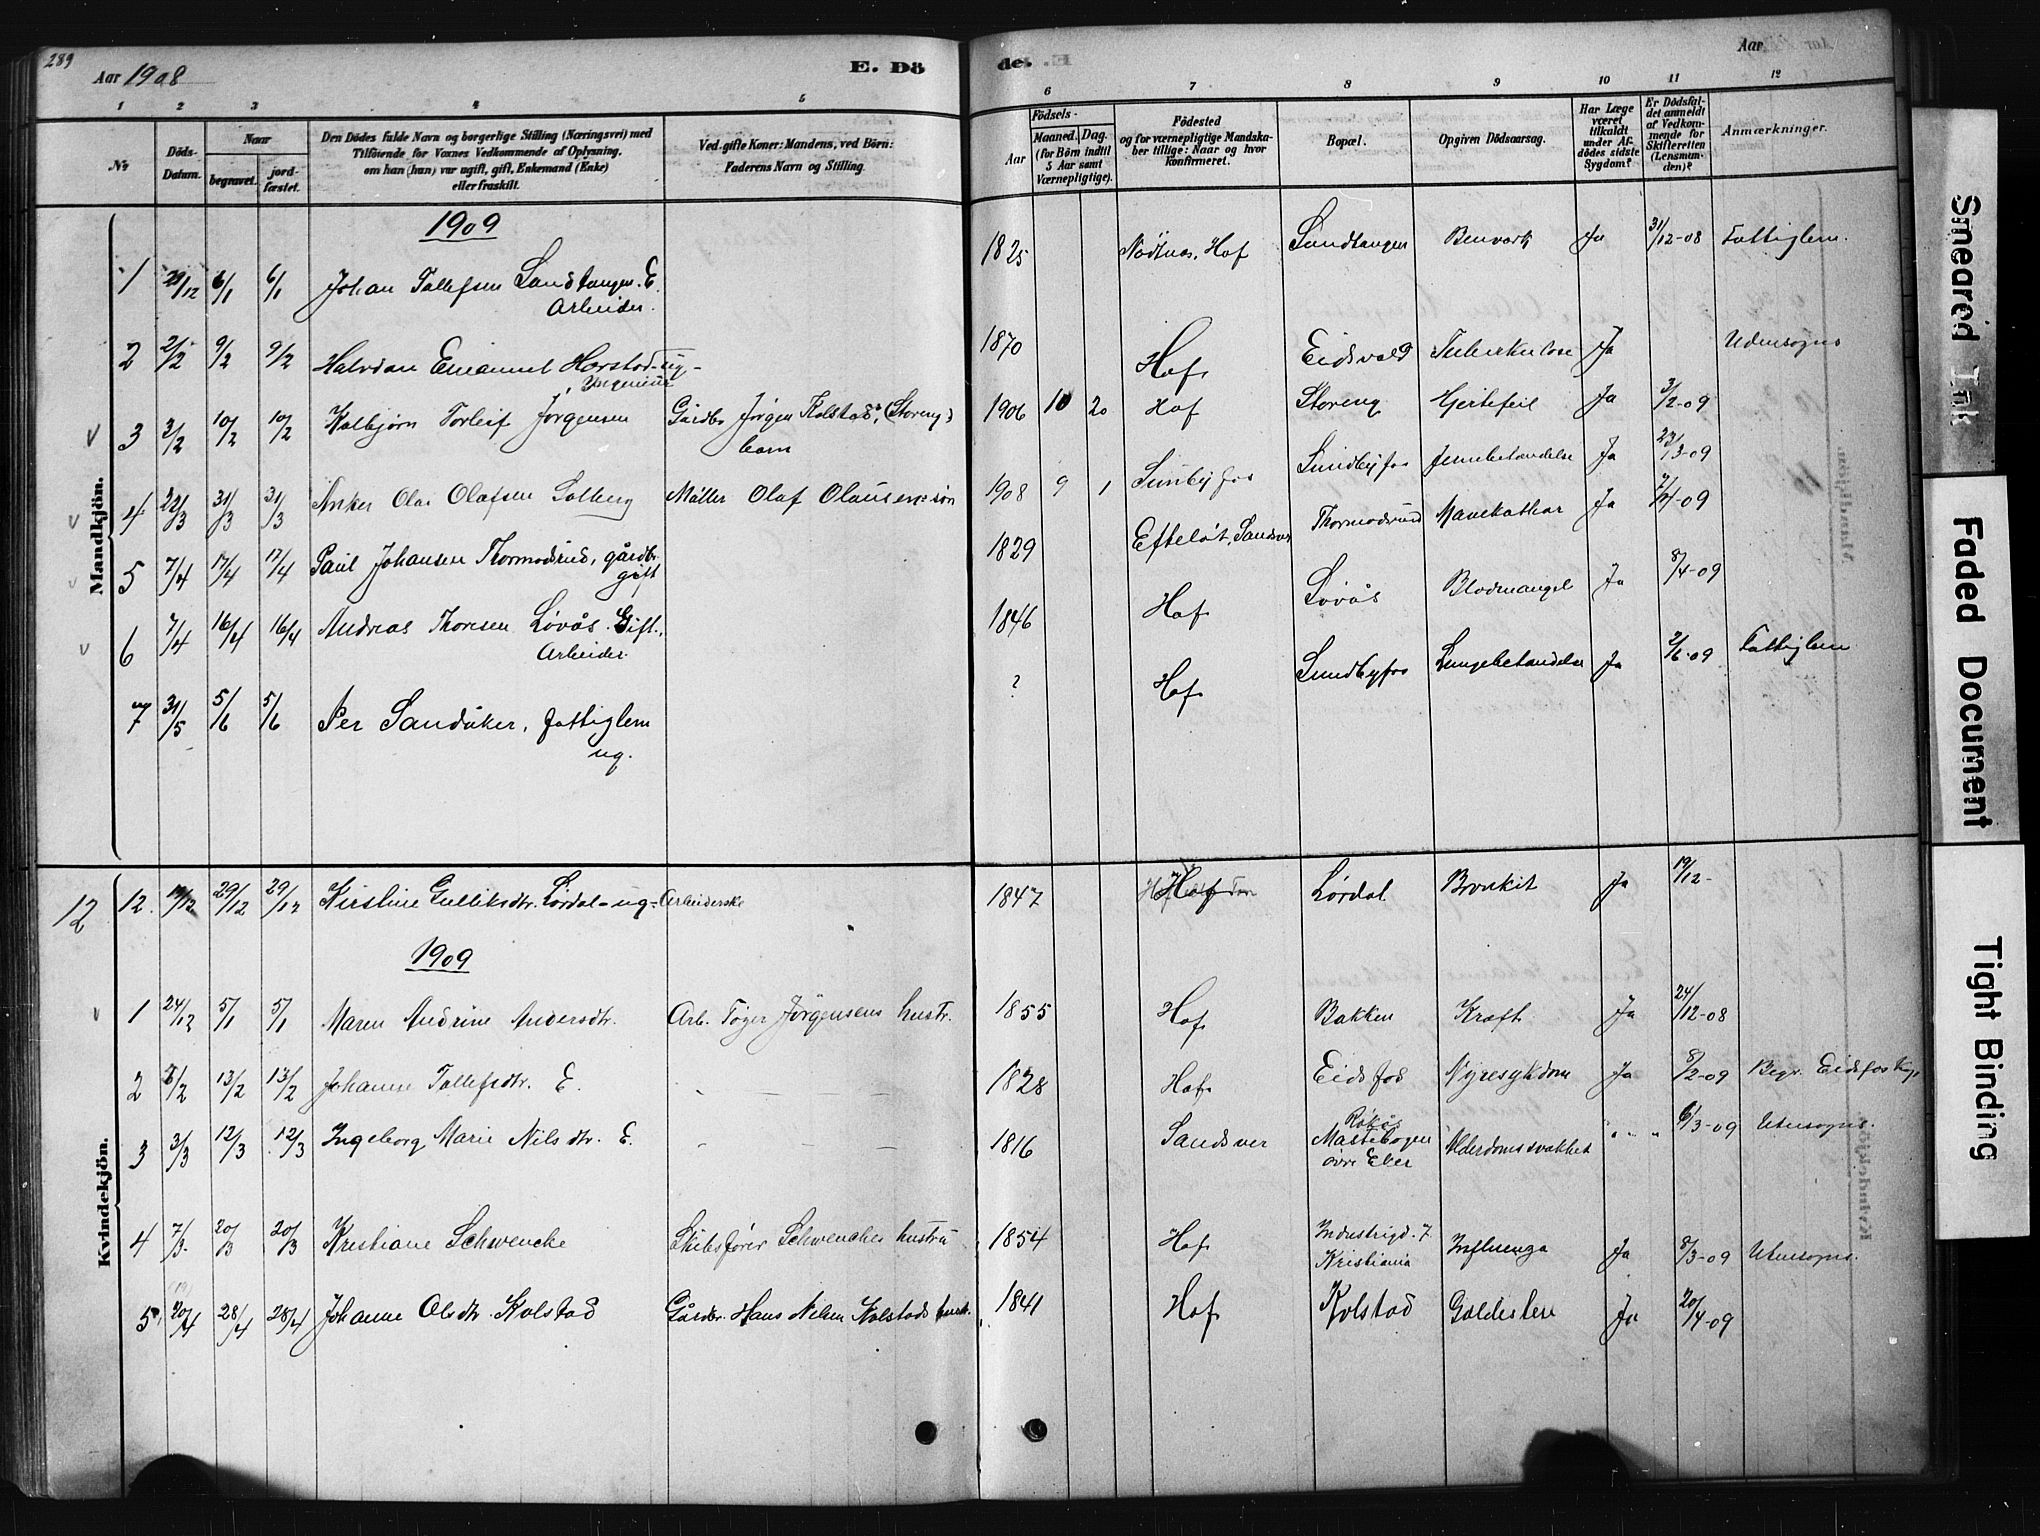 289
Aar 1908
E. Dö
de.
Aar
1 2 3 4 5 6 7 8 9 10 11 12
No
Döds-Datum.
Naar
begravet.
jord-fæstet.
Den Dödes fulde Navn og borgerlige Stilling (Næringsvei) med
Tilföiende for Voxnes Vedkommende af Oplysning,
om han (hun) var ugift, gift, Enkemand (Enke)
eller fraskilt.
Ved gifte Koner: Mandens, ved Börn:
Faderens Navn og Stilling.
Födsels-
Aar
Maaned. Dag.
(for Börn indtil
5 Aar samt
Værnepligtige).
Födested
og for værnepligtige Mandska-
ber tillige: Naar og hvor
Konfirmeret.
Bopæl.
Opgiven Dödsaarsag.
Har Læge
været
tilkaldt
under Af-
dödes sidste
Sygdom?
Er Dödsfal-
det anmeldt
af Vedkom-
mende for
Skifteretten
(Lensman-
den)?
Anmærkninger.
Mandkjön.
1909
1 29/12 6/1 6/1 Johan Tollefsen Sandtangen. E. Arbeider. 1825 Nödtnes, Hof Sandtangen Benværk Ja 31/12-08 Fattiglem.
2 2/2 9/2 9/2 Halvdan Emanuel Horstad - ug - Ingeniør 1870 Hof Eidsvold Tuberkulose Ja Udensogns
3 3/2 10/2 10/2 Kolbjørn Torleif Jørgensen Gårdbr. Jørgen Kolstad's (Storeng) barn 1906 10 20 Hof Storeng Hjertefeil Ja 3/2-09
4 22/3 31/3 31/3 Anker Olaf Olafsen Solberg Møller Olaf Olausens søn 1908 9 1 Sunbyfos Sundbyfos Jernbetændelse Ja 23/3-09
5 7/4 17/4 17/4 Paul Johansen Thormodsrud, gårdbr. gift 1829 Efteløt, Sandsver Thormodsrud Mavekathar Ja 7/4-09
6 7/4 16/4 16/4 Andreas Thoresen Løvås. Gift., Arbeider. 1846 Hof Løvås Blodmangel Ja 8/4-09
7 31/5 5/6 5/6 Per Sandåker, fattiglem ug. ? Hof Sundbyfos Lungebetændelse Ja 2/6-09 Fattiglem
Kvindekjön.
12 12. 19/12 29/12 29/12 Kirstine Gulliksdtr. Lørdal - ug - Arbeiderske 1847 Hof Lørdal Bronkit Ja 19/12-
1909
1 24/12 5/1 5/1 Maren Andrine Andersdtr. Arb. Töger Jörgensens hustr. 1855 Hof Bakken Kræft Ja 24/12-08
2 8/2 13/2 13/2 Johanne Tollefsdtr. E. 1828 Hof Eidsfos Nyresykdom Ja 8/2-09 Begr. Eidsfos
3 3/3 12/3 12/3 Ingeborg Marie Nilsdtr. E. 1816 Sandsver Røkås Mastebogen øvre Eker Alderdomssvakhet 6/3-09 Utensogns.
4 7/3. 20/3 20/3 Kristiane Schwencke Skibsfører Schwenckes hustru 1854 Hof Industrigd. 7 Kristiania Influenza Ja 8/3-09 Utensogns.
5 20/4 28/4 28/4 Johanne Olsdtr. Kolstad Gårdbr. Hans Nilsen Kolstads hustr. 1841 Hof Kolstad Galdesten Ja 20/4-09
Smeared Ink
Faded Document
Tight Binding